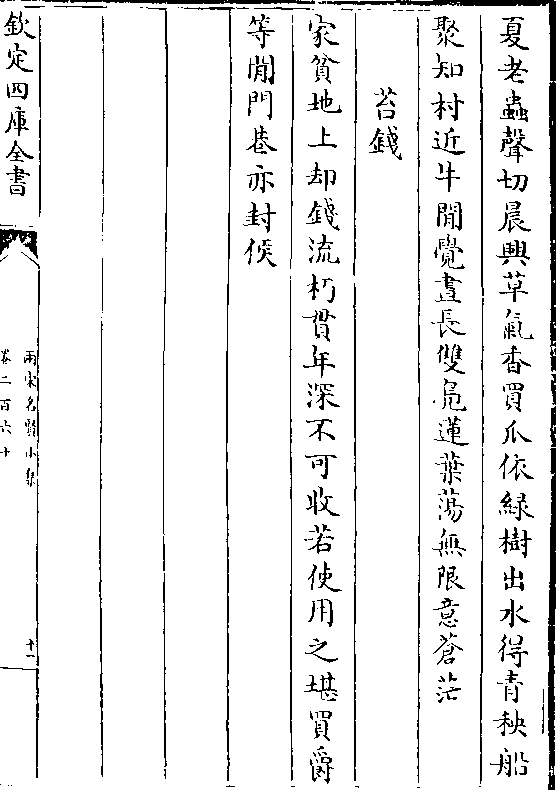 夏老蟲聲切晨興草氣香買瓜依緑樹出水得青秧船
聚知村近牛閒覺晝長雙鳬蓮葉蕩無限意蒼茫
苔錢
家貧地上却錢流朽貫年深不可收若使用之堪買爵
等閒門巷亦封侯
欽定四庫全書
兩宋名賢小集
卷二百六十
十一